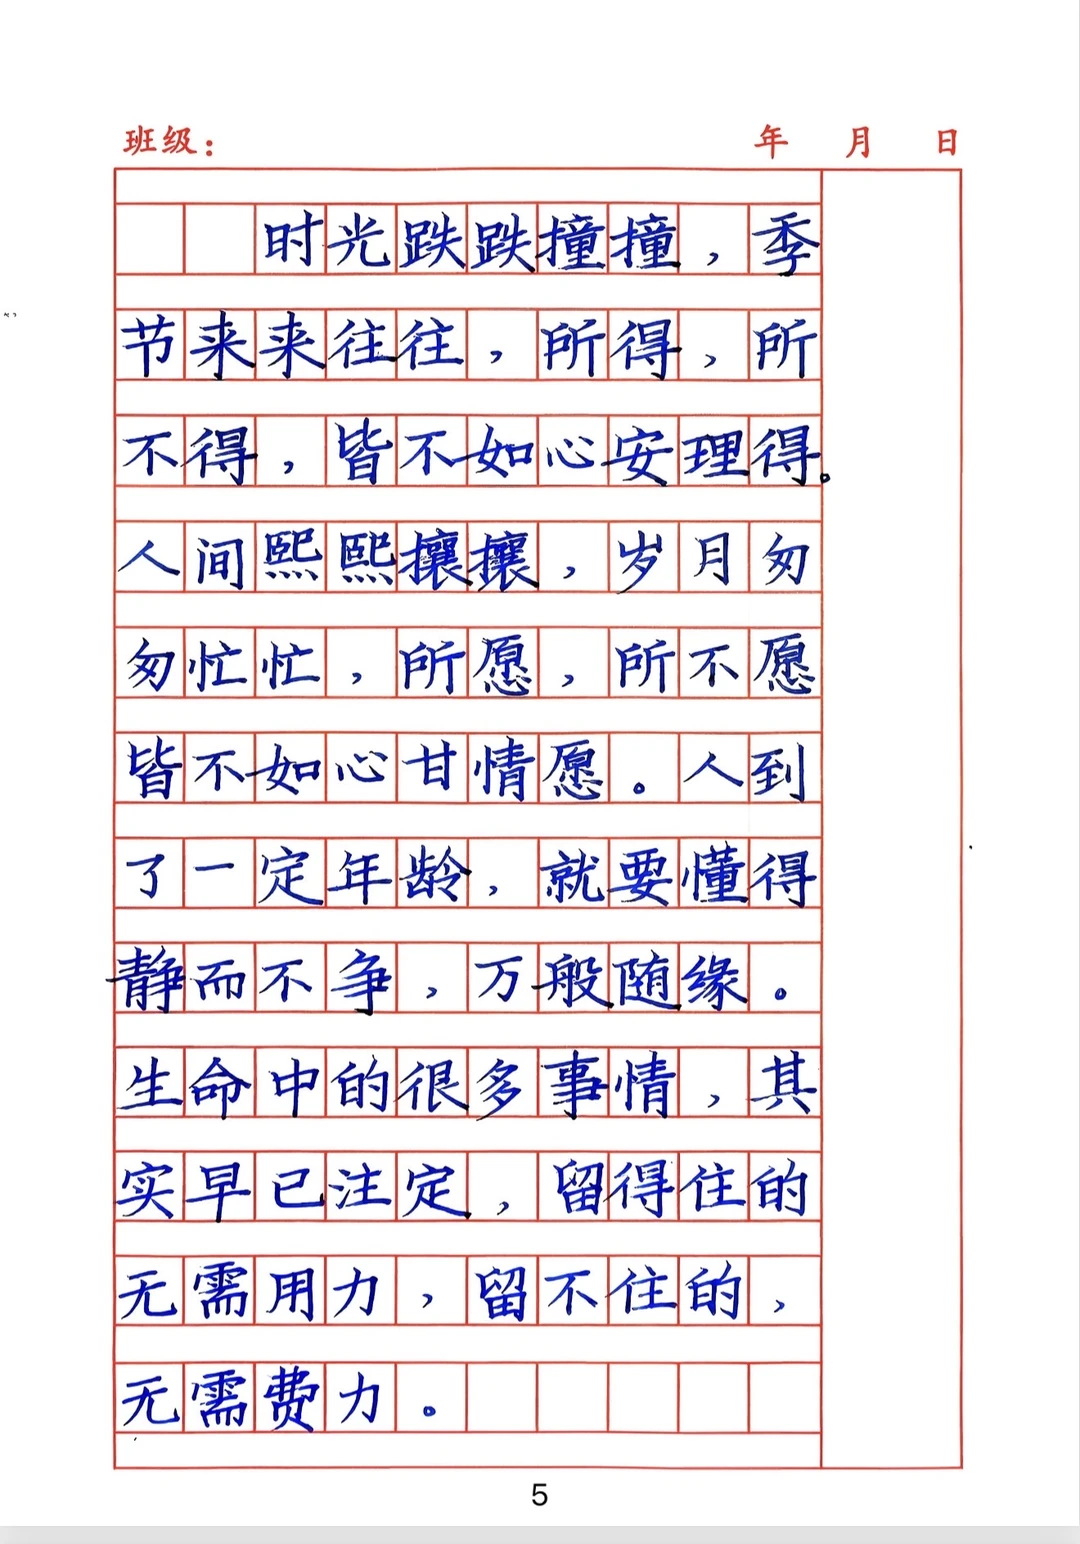 班级： 年 月 日
时光跌跌撞撞，季
节来来往往，所得，所
不得，皆不如心安理得。
人间熙熙攘攘，岁月匆
匆忙忙，所愿，所不愿
皆不如心甘情愿。人到
了一定年龄，就要懂得
静而不争，万般随缘。
生命中的很多事情，其
实早已注定，留得住的
无需用力，留不住的，
无需费力。
5